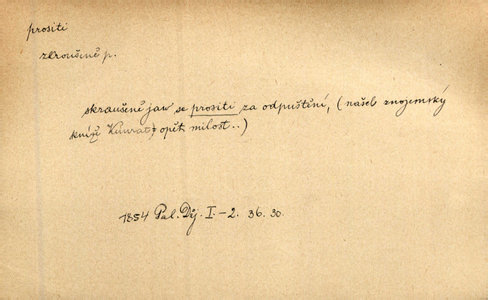 prositi
zkroušeně p.
skroušeně jav se prositi za odpuštění, (našel znojemský
kníže Kunrat) opět milost..)
1854 Pal. Děj. I-2. 36. 30.